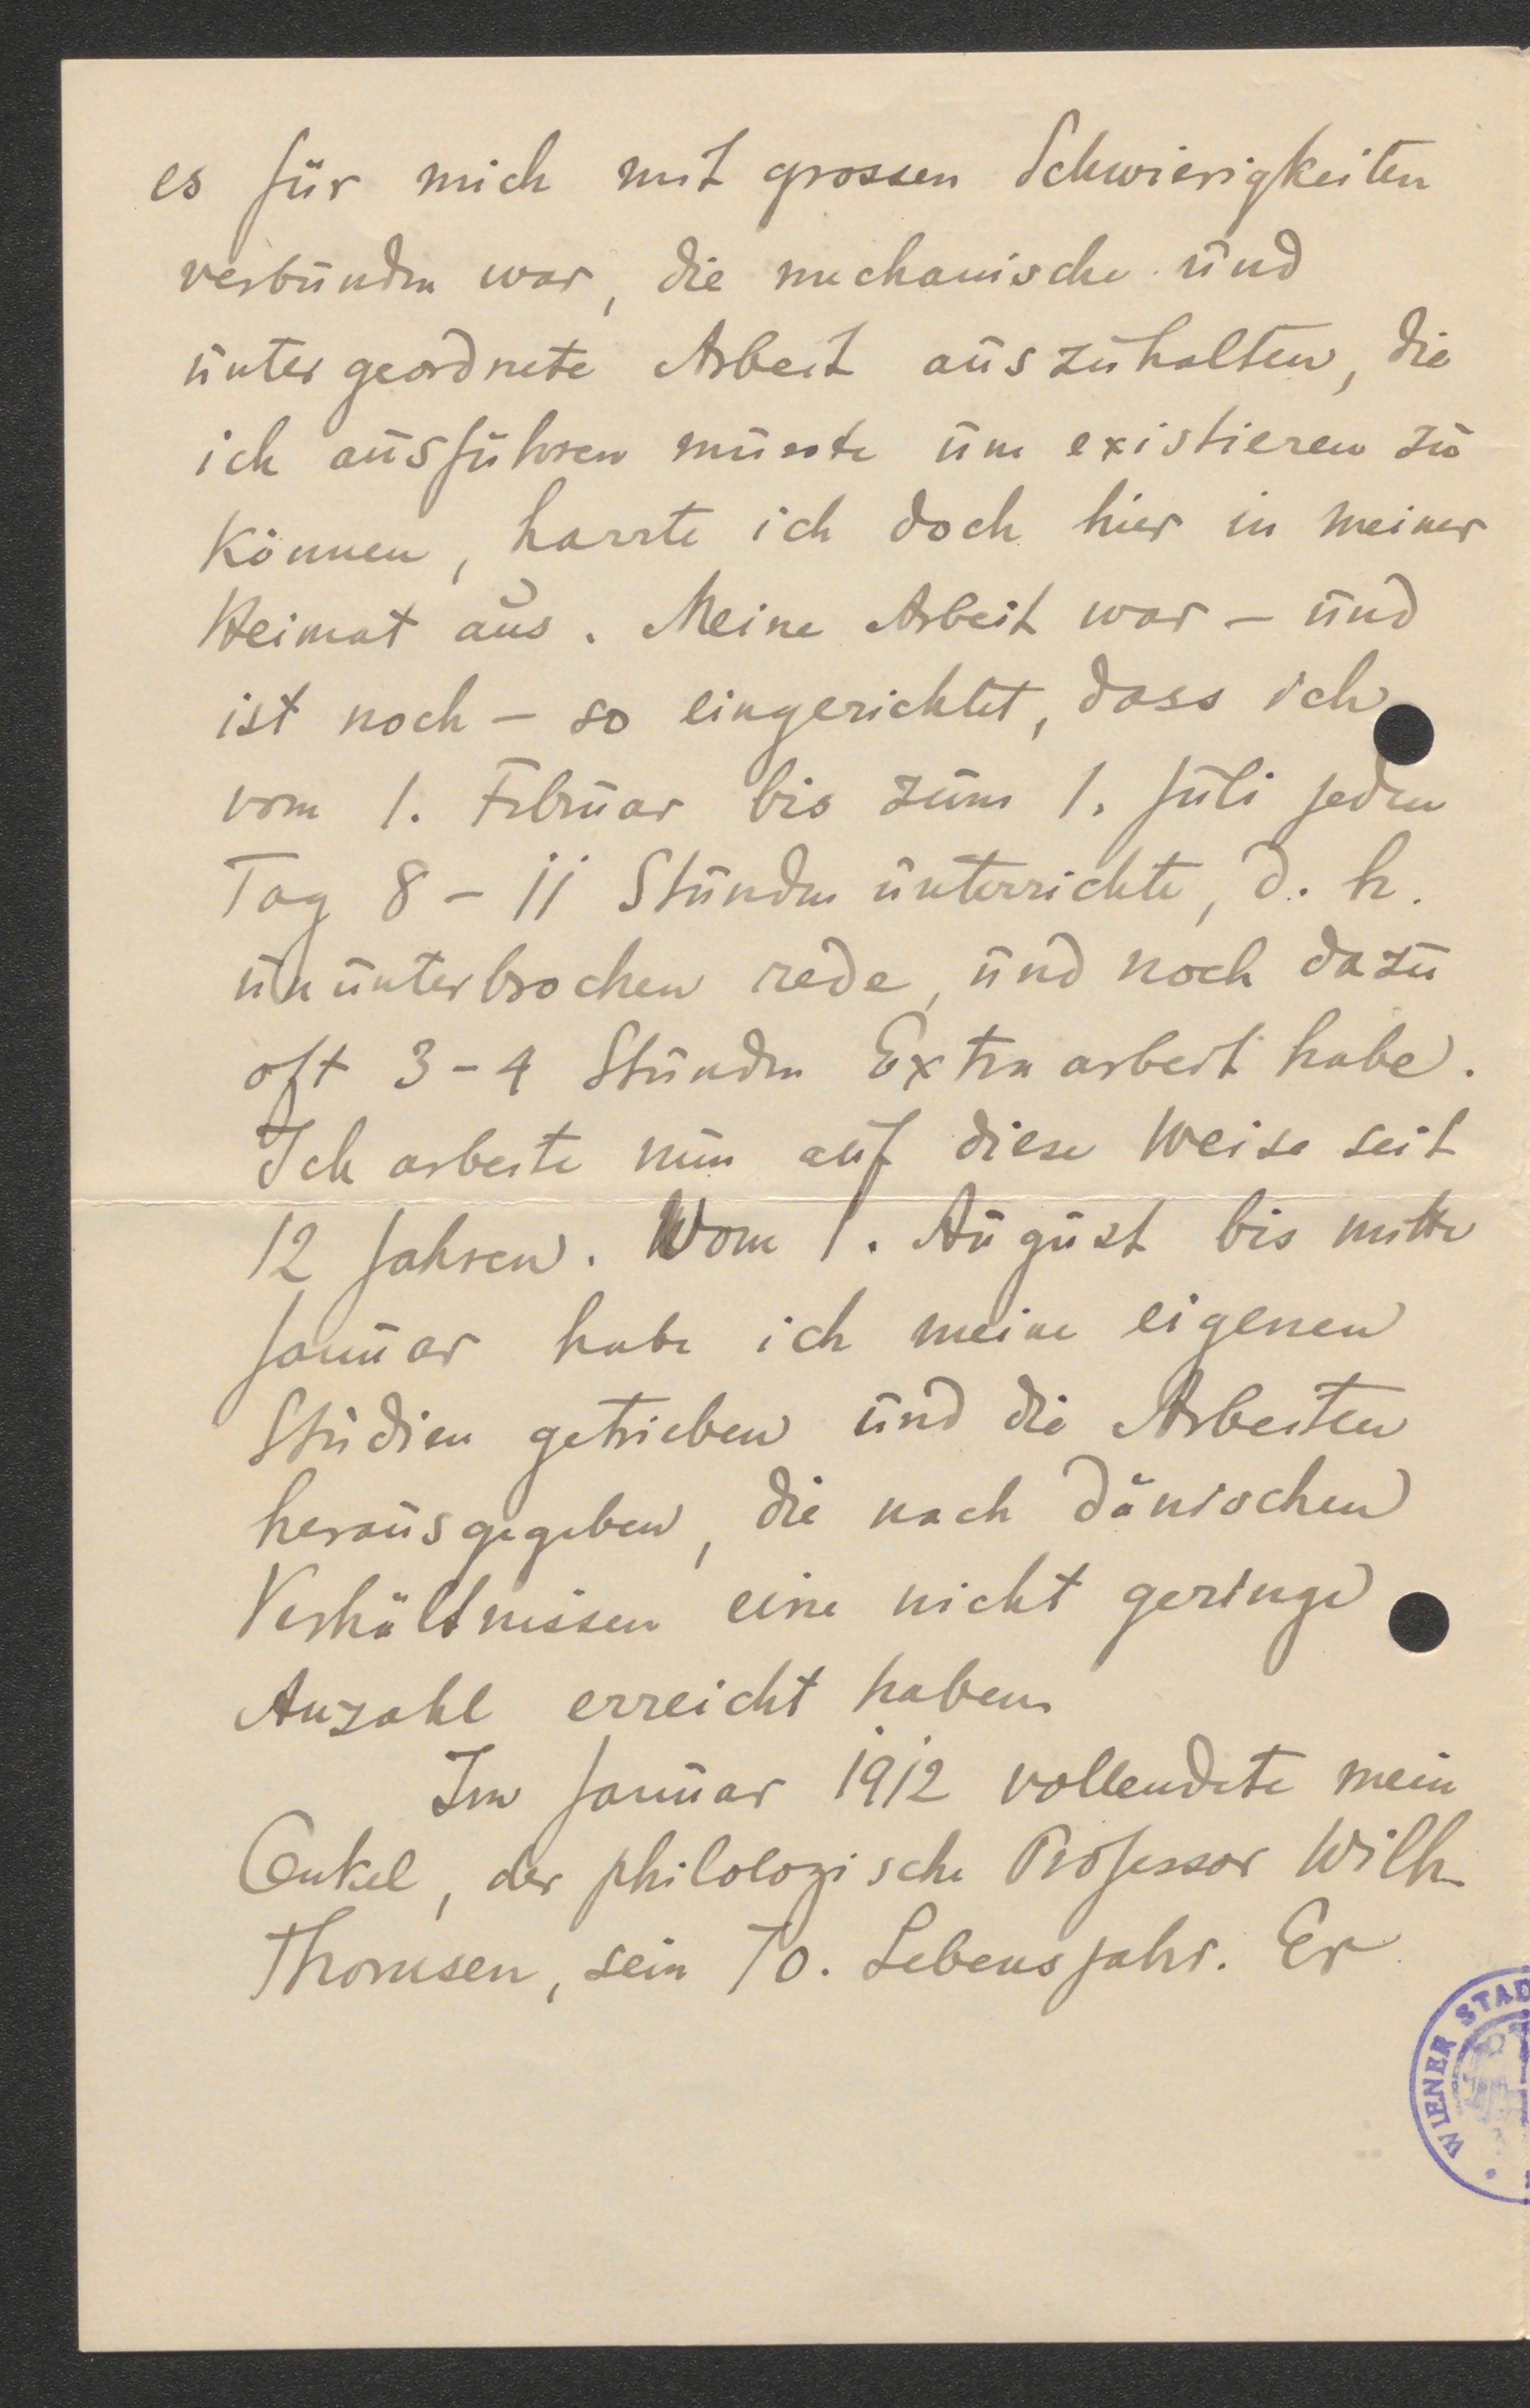 es für mich mit grossen Schwierigkeiten
verbunden war, die mechanische und
untergeordnete Arbeit auszuhalten, die
ich ausführen musste um existieren zu
können, harrte ich doch hier in meiner
Heimat aus. Meine Arbeit war – und
ist noch – so eingerichtet, dass ich
vom 1. Februar bis zum 1. Juli jeden
Tag 8 – 11 Stunden unterrichte, d. h.
ununterbrochen rede, und noch dazu
oft 3 – 4 Stunden Extraarbeit habe.
Ich arbeite nun auf diese Weise seit
12 Jahren. Vom 1. August bis mitte
Januar habe ich meine eigenen
Studien getrieben und die Arbeiten
herausgegeben, die nach dänischen
Verhältnissen eine nicht geringe
Anzahl erreicht haben.
Im Januar 1912 vollendete mein
Onkel, der philologische Professor Wilh.
Thomsen, sein 70. Lebensjahr. Er
WIENER STAD